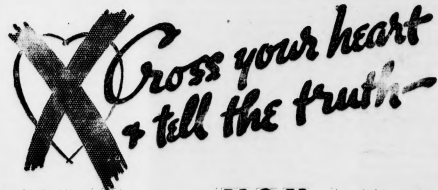 Cross your heart
& tell the truth—